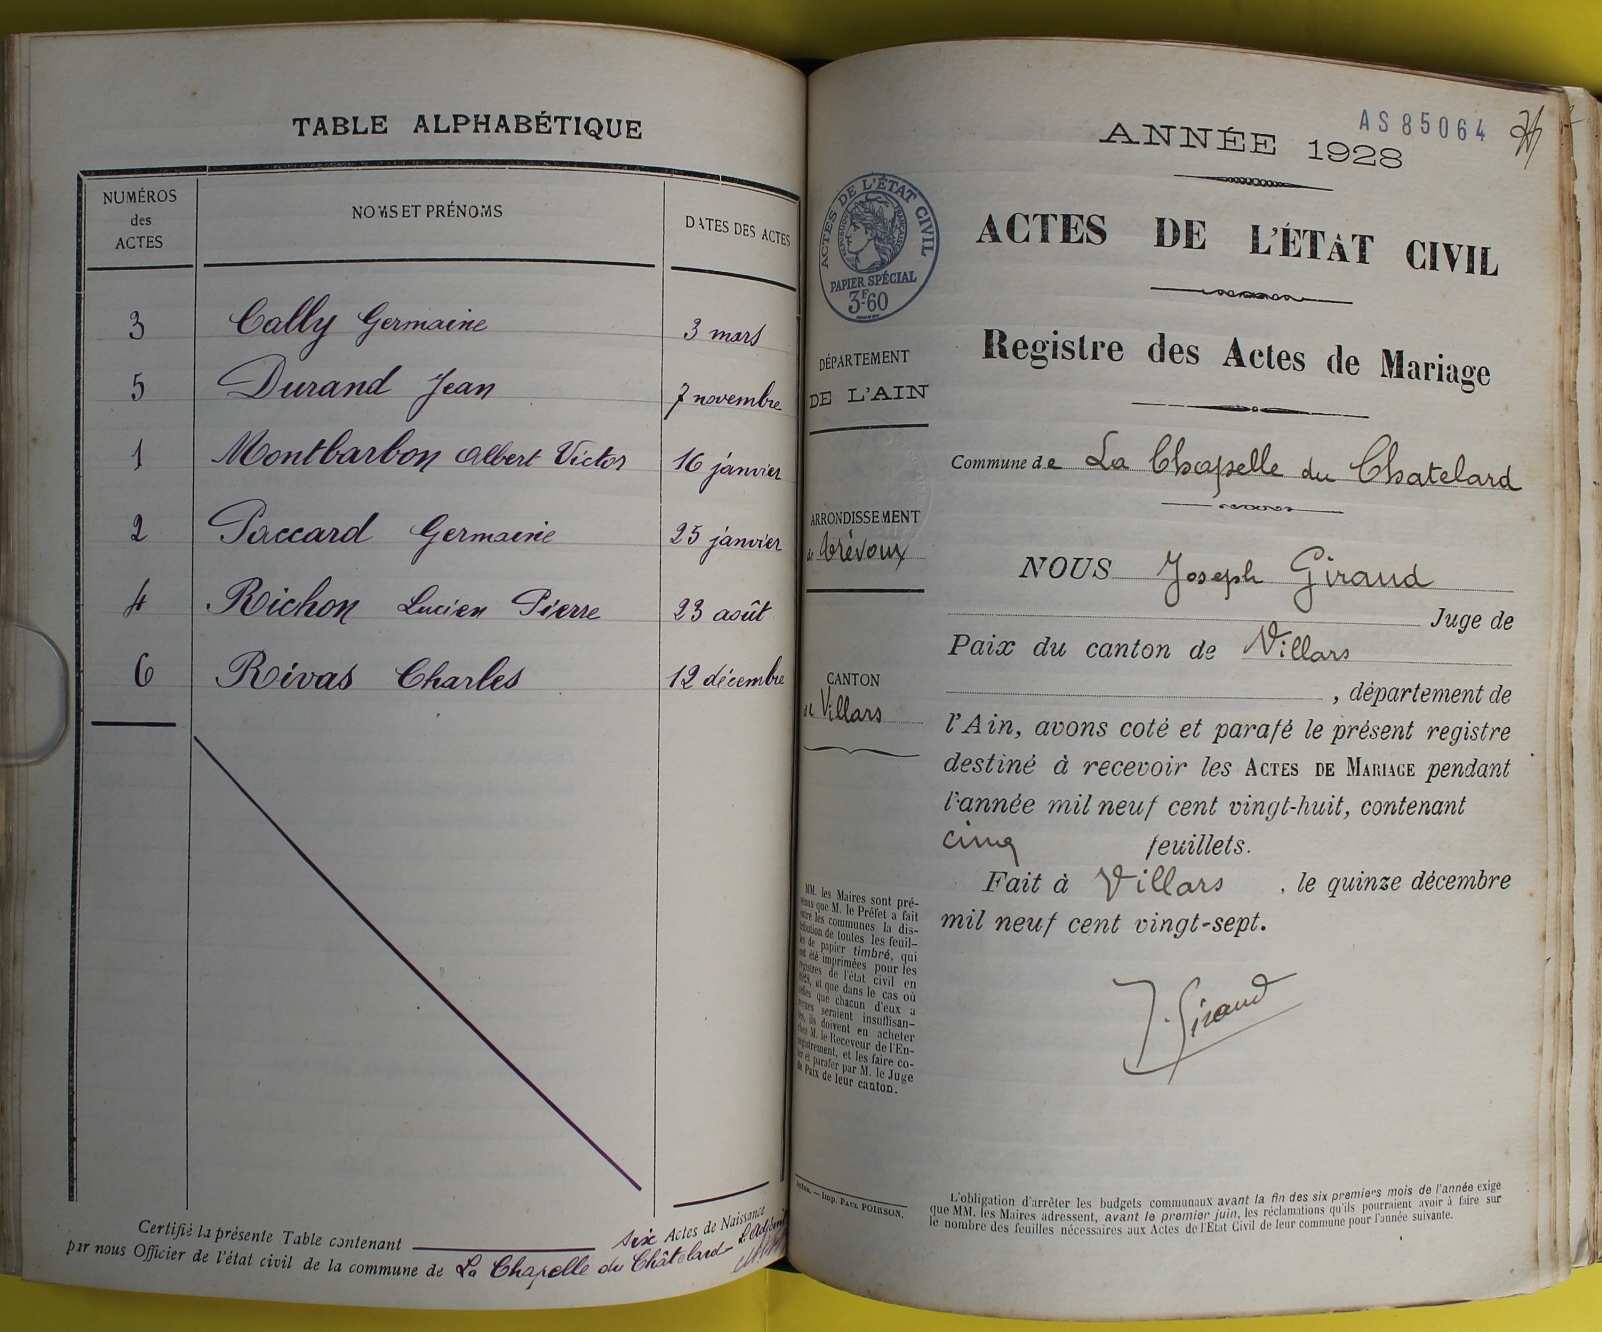 TABLE ALPHABÉTIQUE
NUMÉROS des ACTES NOMS ET PRÉNOMS DATES DES ACTES
3 Cally Germaine 3 mars
5 Durand Jean 7 novembre
1 Montbarbon Albert Victor 16 janvier
2 Paccard Germaine 25 janvier
4 Richon Lucien Pierre 23 août
6 Rivas Charles 12 décembre
Certifié la présente Table contenant six Actes de Naissance
par nous Officier de l'état civil de la commune de La Chapelle du Châtelard
AS85064
ANNÉE 1928
ACTES DE L'ÉTAT CIVIL
PAPIER SPÉCIAL
3F60
DÉPARTEMENT
DE L'AIN
ARRONDISSEMENT
de Trévoux
CANTON
de Villars
MM. les Maires sont pré-
venus que M. le Préfet a fait
entre les communes la dis-
tribution de toutes les feuil-
les de papier timbré, qui
ont été imprimées pour les
registres de l'état civil en
1928, et que dans le cas où
celles que chacun d'eux a
reçues seraient insuffisan-
tes, ils doivent en acheter
chez M. le Receveur de l'En-
registrement, et les faire co-
ter et parafer par M. le Juge
de Paix de leur canton.
Imp. PAUL POIRSON.
ACTES DE L'ÉTAT CIVIL
Registre des Actes de Mariage
Commune de La Chapelle du Chatelard
NOUS Joseph Giraud
Juge de
Paix du canton de Villars
, département de
l'Ain, avons coté et parafé le présent registre
destiné à recevoir les ACTES DE MARIAGE pendant
l'année mil neuf cent vingt-huit, contenant
cinq feuillets.
Fait à Villars , le quinze décembre
mil neuf cent vingt-sept.
J. Giraud
L'obligation d'arrêter les budgets communaux avant la fin des six premiers mois de l'année exige
que MM. les Maires adressent, avant le premier juin, les réclamations qu'ils pourraient avoir à faire sur
le nombre des feuilles nécessaires aux Actes de l'Etat Civil de leur commune pour l'année suivante.